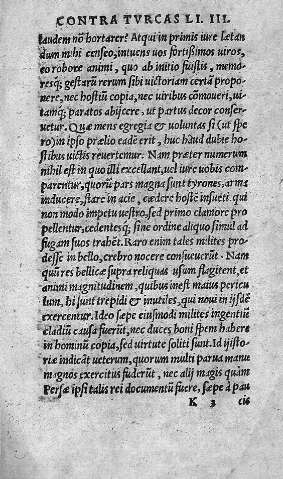 CONTRA TVRCAS LI. III.
laudem nõ hortarer? Atqui in primis iure lætan
dum mihi censeo, intuens uos fortißimos uiros,
eo robore animi, quo ab initio fuistis, memo-
resq; gestarũ rerum sibi uictoriam certã propo-
nere, nec hostiũ copia, nec uiribus cõmoueri, ui-
tamq; paratos abijcere, ut partus decor conser-
uetur. Quæ mens egregia & uoluntas si (ut spe
ro) in ipso prælio eadẽ erit, huc haud dubie ho-
stibus uictis reuertemur. Nam præter numerum
nihil est in quo illi excellant, uel iure uobis com-
parentur, quorũ pars magna sunt tyrones, arma
inducere, stare in acie, cædere hostẽ insueti qui
non modo impetu uestro, sed primo clamore pro
pellentur, cedentesq; sine ordine aliquo simul ad
fugam suos trahẽt. Raro enim tales milites pro-
desse in bello, crebro nocere consucurũt. Nam
quũ res bellicæ supra reliquas usum flagitent, et
animi magnitudinem, quibus inest maius pericu
lum, hi sunt trepidi & inutiles, qui noui in ijsdẽ
exercentur. Ideo sæpe eiusmodi milites ingentiũ
cladiũ causa fuerũt, nec duces boni spem habere
in hominũ copia, sed uirtute soliti sunt. Id histo-
riæ indicãt ueterum, quorum multi parua manu
magnos exercitus fuderũt, nec alij magis quàm
Persæ ipsi talis rei documentũ fuere, sæpe à pau
K 3 cis